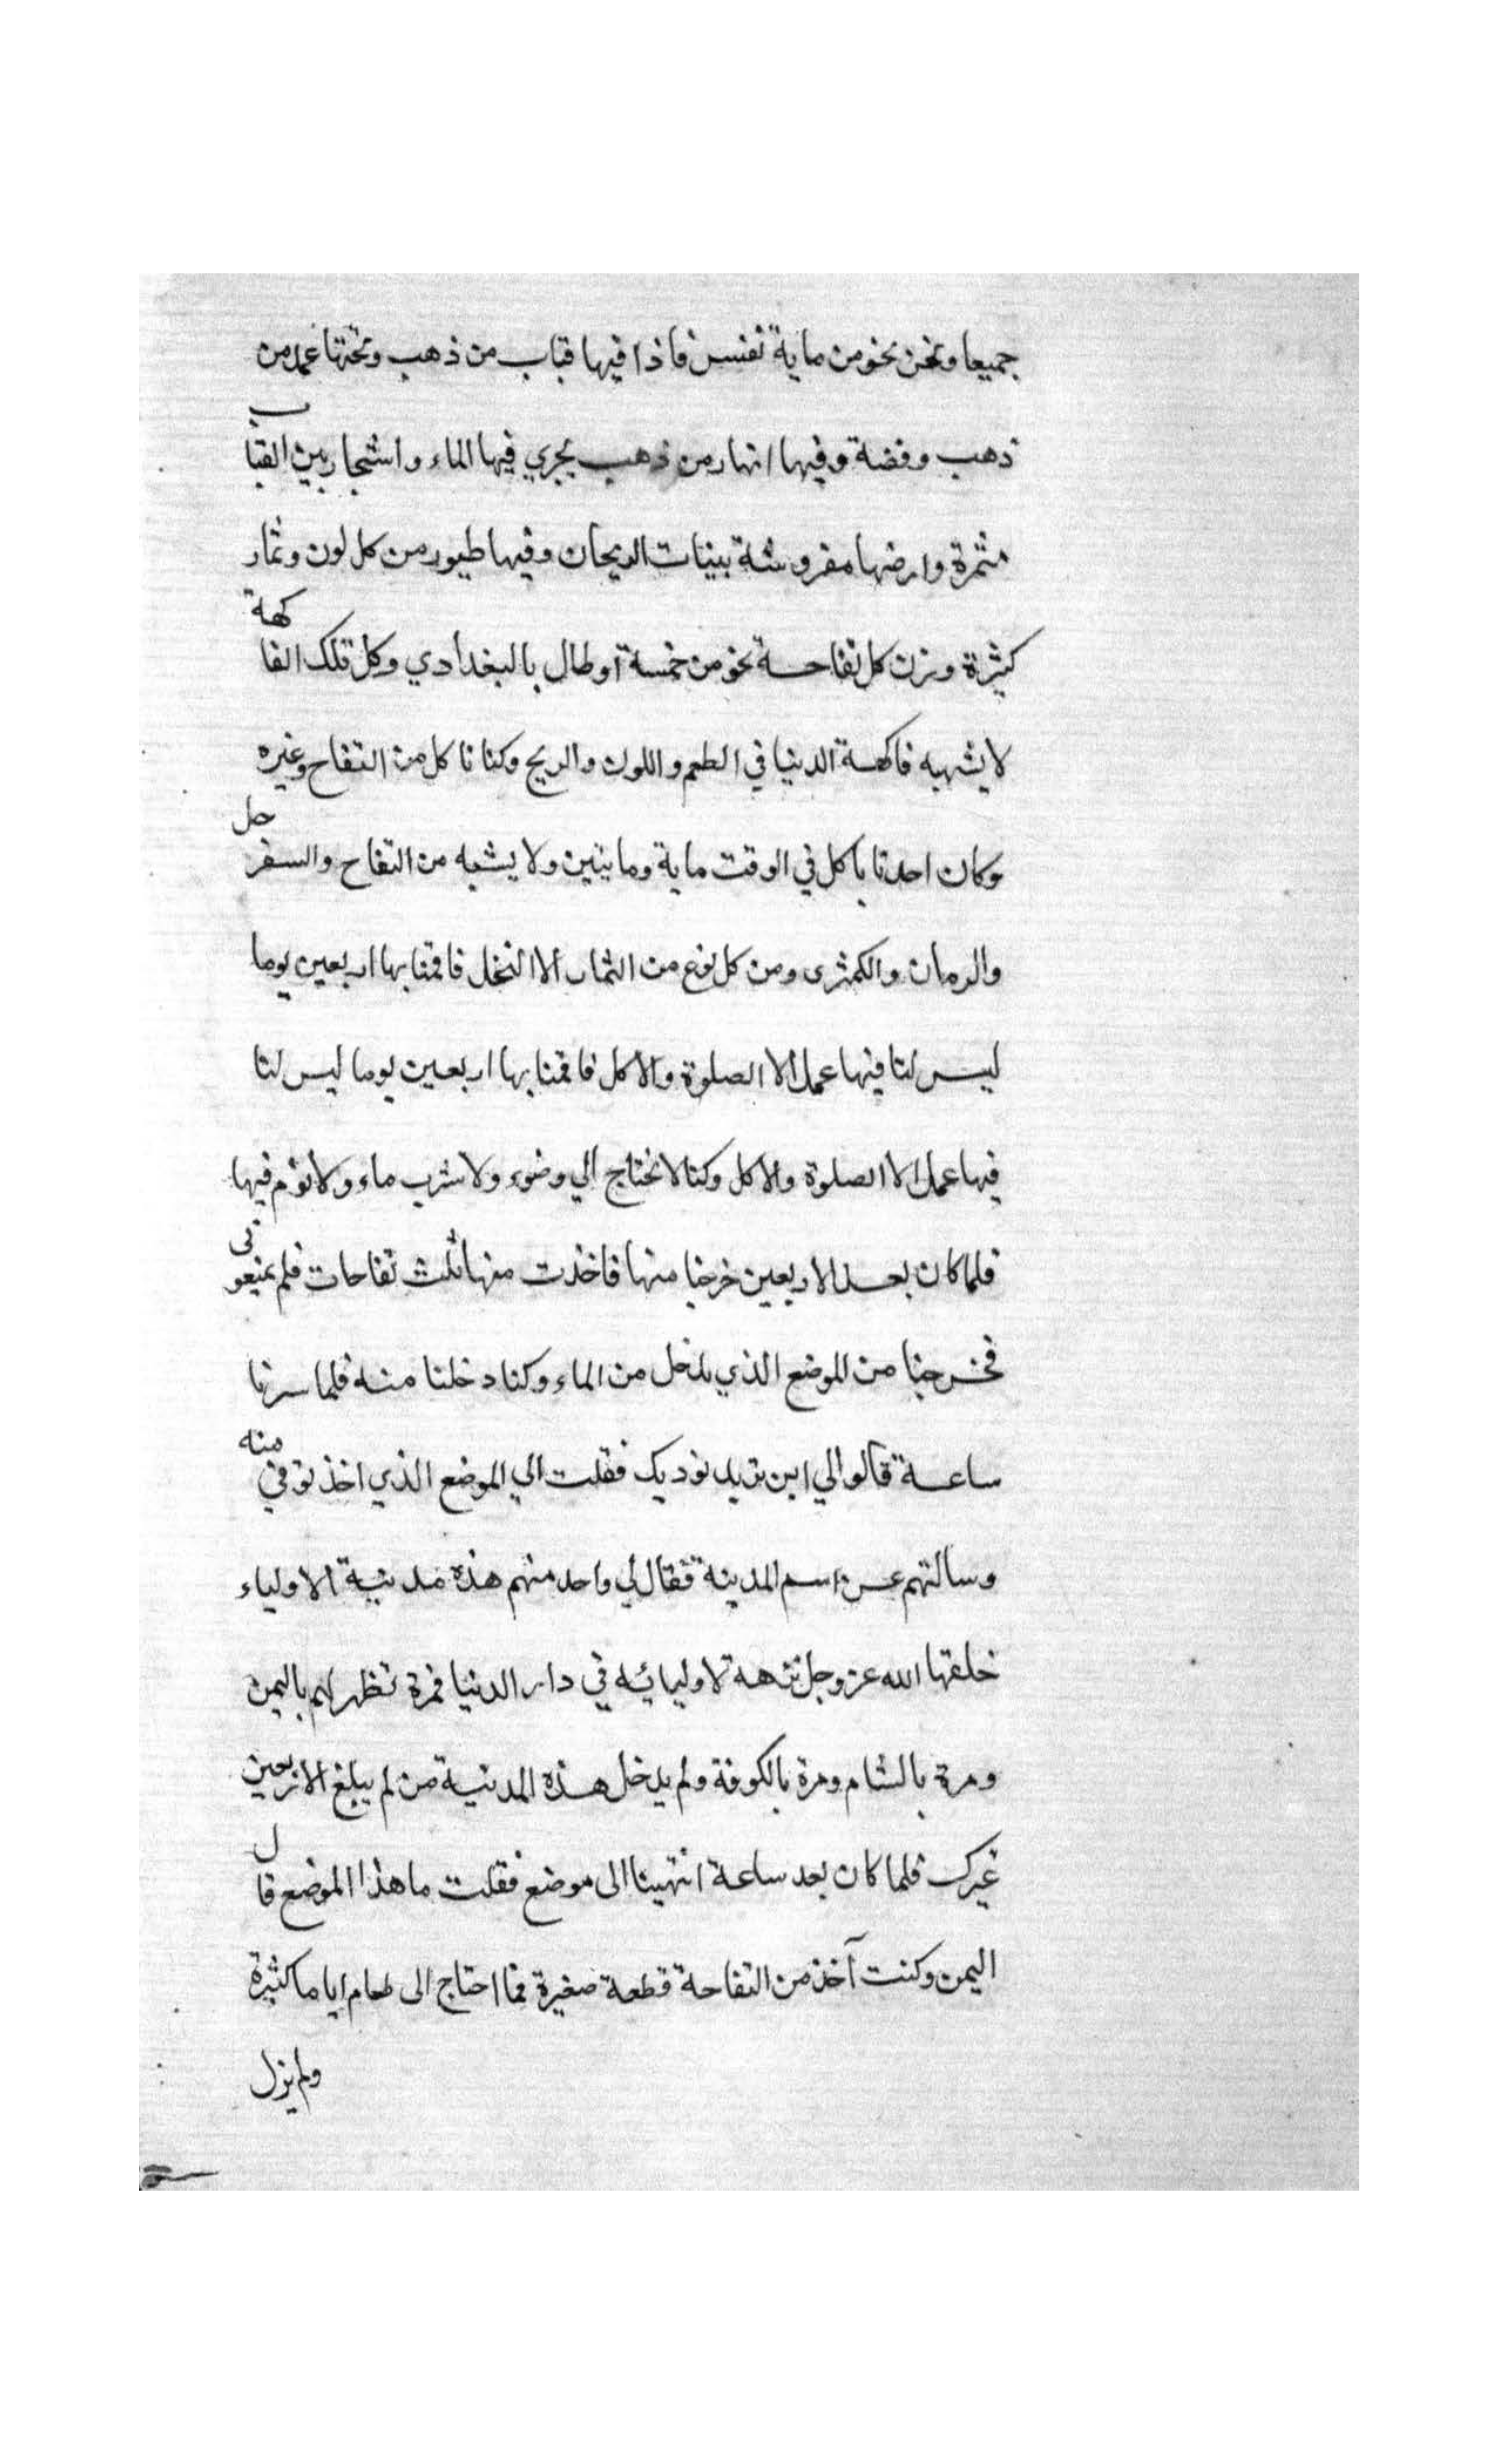 جميعا ونحن نحو من ماية نفس فاذا فيها قباب من ذهب وتحتها عمد من
ذهب وفضة وفيها انهار من ذهب يجري فيها الماء واشجار بين القباب
مثمرة وارضها مفروشة بنبات الريحان وفيها طيور من كل لون وثمار
كثيرة وزن كل تفاحة نحو من خمسة اوطال بالبغدادي وكل تلك الفاكهة
لا يشبه فاكهة الدنيا في الطعم واللون والريح وكنا ناكل من التفاح وغيره
وكان احدنا ياكل في الوقت ماية ومايتين ولا يشبه من التفاح والسفرجل
والرمان والكمثرى ومن كل نوع من الثمار الا النخل فاقمنا بها اربعين يوما
ليس لنا فيها عمل الا الصلوة والاكل فاقمنا بها اربعين يوما ليس لنا
فيها عمل الا الصلوة والاكل وكنا لا نحتاج الي وضوء ولا شرب ماء ولا نوم فيها
فلما كان بعد الاربعين خرجنا منها فاخذت منها ثلث تفاحات فلم يمنعوني
فخرجنا من الموضع الذي يدخل من الماء وكنا دخلنا منه فلما سرنا
ساعة قالوا لي اين تريد نوديك فقلت الي الموضع الذي اخذتوني منه
وسالتهم عن اسم المدينة فقال لي واحد منهم هذه مدينة الاولياء
خلقها الله عز وجل نزهة لاوليائه في دار الدنيا فمرة تظهر لهم باليمن
ومرة بالشام ومرة بالكوفة ولم يدخل هذه المدينة من لم يبلغ الاربعين
غيرك فلما كان بعد ساعة انتهينا الى موضع فقلت ما هذا الموضع قال
اليمن وكنت آخذ من التفاحة قطعة صغيرة فما احتاج الى طعام اياما كثيرة
ولم يزل